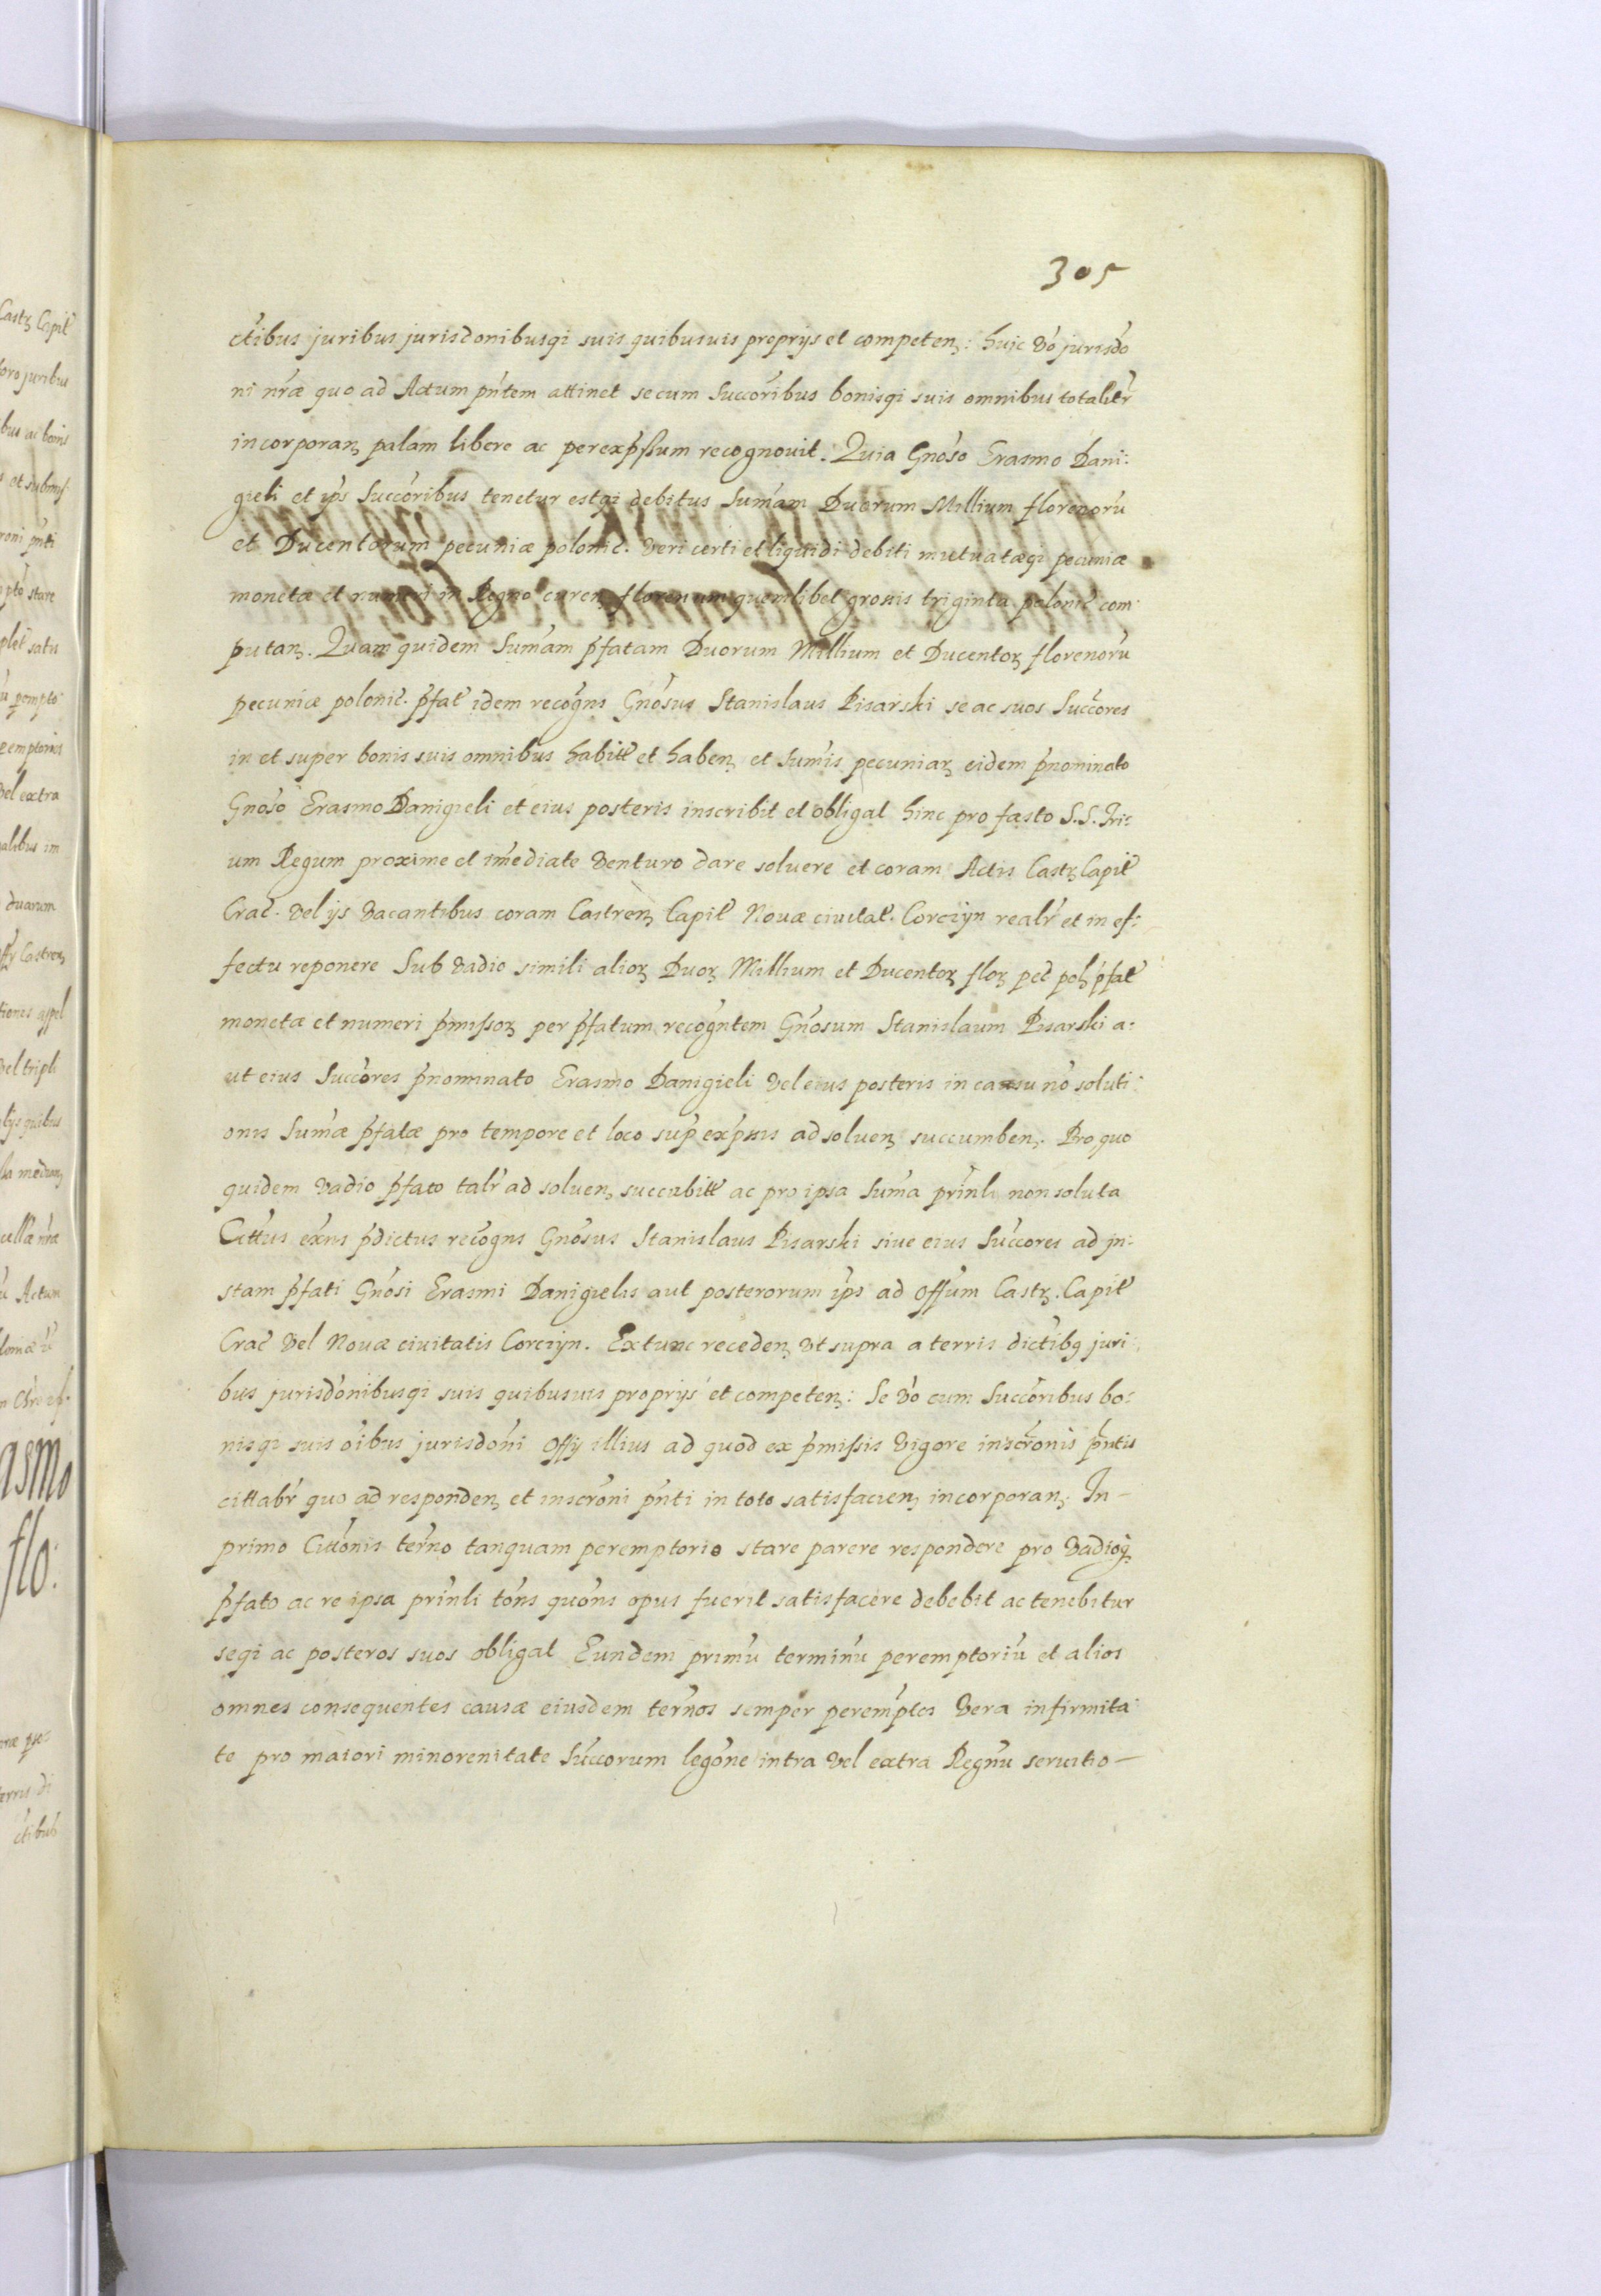 305
ctibus juribus jurisdonibusqi suis quibusuis proprijs et competen: huic vo jurisdo
ni nræ quo ad Actum pntem attinet se cum succoribus bonisqi suis omnibus totalitr
incorporan palam libere ac per expssum recognouit. Quia Gnoso Erasmo Dani:
gieli et ips succoribus tenetur estqi debitus sumam Duorum Millium florenoru
et Ducentorum pecuniæ polonic. veri certi et liquidi debiti mutuatæqi pecuniæ
monetæ et numeri in Regno curen florenum quemlibet grossis triginta polonic com
putan. Quam quidem sumam pfatam Duorum Millium et Ducentor florenoru
pecuniæ polonic. pfat idem recogns Gnosus Stanislaus Pisarski se ac suos succores
in et super bonis suis omnibus habitt et haben et sumis pecuniar eidem pnominato
Gnoso Erasmo Danigieli et eius posteris inscribit et obligat hinc pro fæsto S.S. Tri:
um Regum proxime et imediate venturo dare soluere et coram Actis Castr Capit
Crac. vel ijs vacantibus coram Castren Capit Nouæ ciuitat. Corczyn realr et in ef:
fectu reponere sub vadio simili alior Duor Millium et Ducentor flor pec pol pfat
monetæ et numeri pmissor per pfatum recogntem Gnosum Stanislaum Pisarski a:
ut eius succores pnominato Erasmo Danigieli vel eius posteris in causu no soluti:
onis sumæ pfatæ pro tempore et loco sup expssis ad soluen succumben. Pro quo
quidem vadio pfato talr ad soluen succubitt ac pro ipsa suma prinli non soluta
Cittus exns pdictus recogns Gnosus Stanislaus Pisarski siue eius succores ad jn:
stam pfati Gnosi Erasmi Danigielis aut posterorum ips ad offum Castr. Capit
Crac vel Nouæ ciuitatis Corczyn. Extunc receden vt supra a terris dictibq juri:
bus jurisdonibusqi suis quibusuis proprijs et competen: se vo cum succoribus bo:
nisqi suis oibus jurisdoni offy illius ad quod ex pmissis vigore inscronis pntis
cittabr quo ad responden et inscroni pnti in toto satisfacien incorporan. In -
primo Cittonis terno tanquam peremptorio stare parere respondere pro vadioq
pfato ac re ipsa prinli tons quons opus fuerit satisfacere debebit ac tenebitur
seqi ac posteros suos obligat Eundem primu terminu peremptoriu et alios
omnes consequentes causæ eiusdem ternos semper peremptos vera infirmita
te pro maiori minorenitate succorum legone intra vel extra Regnu seruitio -